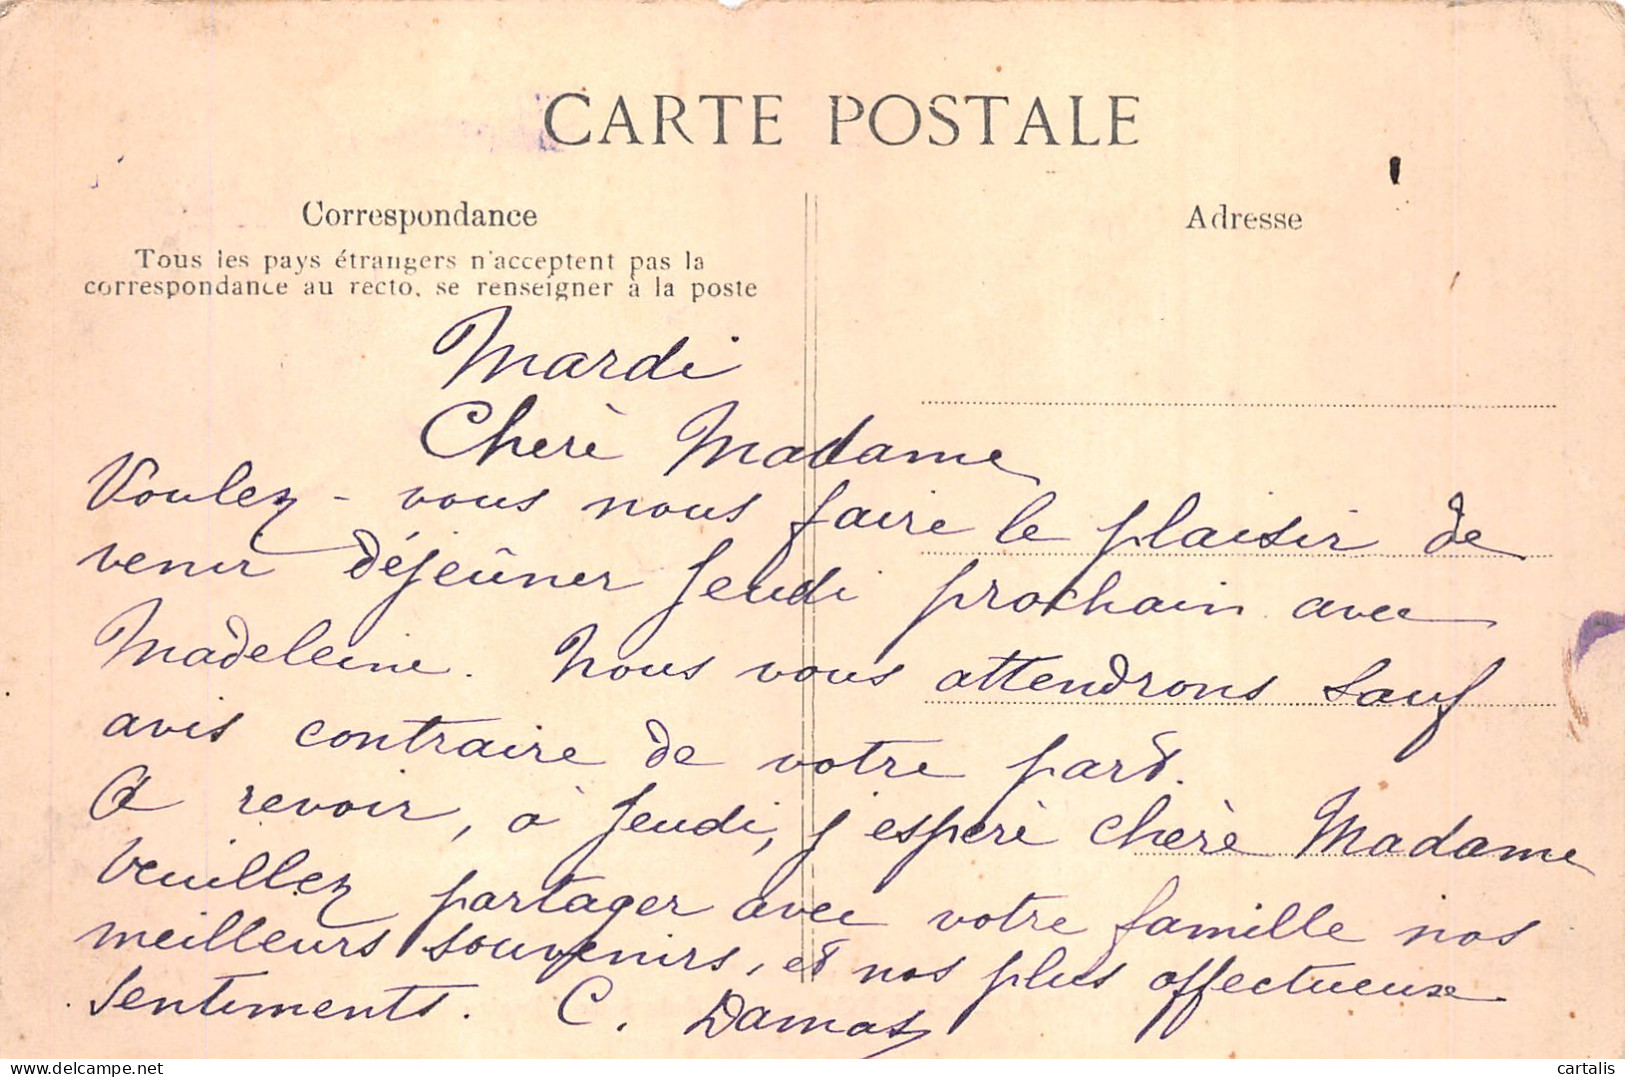 CARTE POSTALE
Correspondance
Adresse
Tous les pays étrangers n'acceptent pas la
correspondance au recto, se renseigner à la poste
Mardi
Cherè Madame
Voulez-vous nous faire le plaisir de
venir déjeûner Jeudi prochain avec
Madeleine. Nous vous attendrons sauf
avis contraire de votre part.
A revoir, à Jeudi, j'esperè cherè Madame
Veuillez partager avec votre famille nos
meilleurs souvenirs, et nos plus affectueux
sentiments. C. Damas
delcampe.net
cartalis